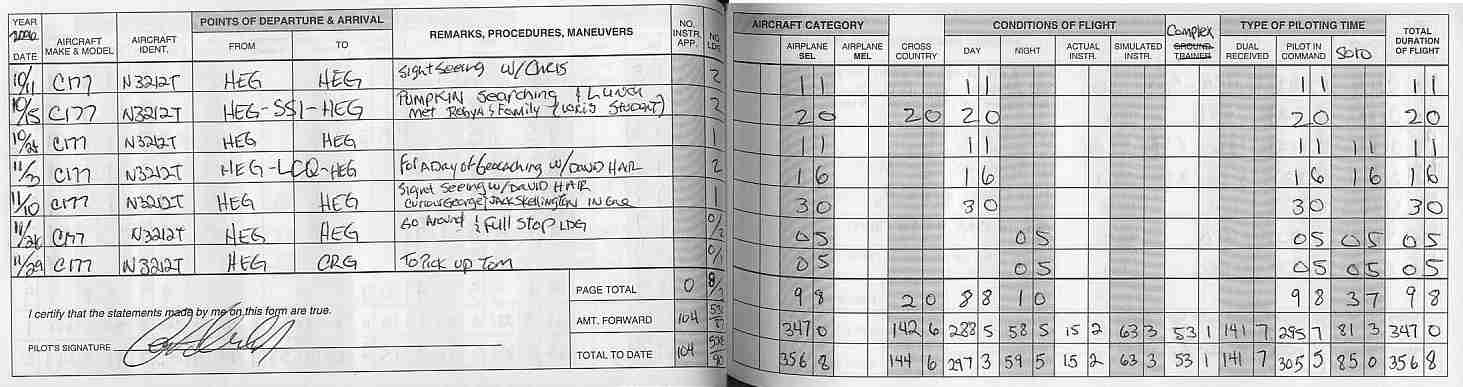 YEAR 2006 DATE AIRCRAFT MAKE & MODEL AIRCRAFT IDENT. POINTS OF DEPARTURE & ARRIVAL FROM TO REMARKS, PROCEDURES, MANEUVERS NO. INSTR. APP. NO. LDG
10/11 C177 N3212T HEG HEG Sight Seeing w/ Chris 2
10/15 C177 N3212T HEG-SSI-HEG Pumpkin Searching & Lunch 2
met Robyn & Family Student)
10/26 C177 N3212T HEG HEG 1
11/3 C177 N3212T HEG-LCQ-HEG For A Day of Geocaching w/ David HAIR 2
11/10 C177 N3212T HEG HEG Sight Seeing w/ DAVID HAIR 1
Curious George JACK Skellington IN
11/26 C177 N3212T HEG HEG Go Around & Full Stop LDG
11/29 C177 N3212T HEG CRG To Pick up Tom 0/1
I certify that the statements made by me on this form are true.
PILOT'S SIGNATURE
PAGE TOTAL 0
AMT. FORWARD 104
TOTAL TO DATE 104
AIRCRAFT CATEGORY CONDITIONS OF FLIGHT TYPE OF PILOTING TIME TOTAL DURATION OF FLIGHT
AIRPLANE SEL AIRPLANE MEL CROSS COUNTRY DAY NIGHT ACTUAL INSTR. SIMULATED INSTR. Complex GROUND TRAINER DUAL RECEIVED PILOT IN COMMAND Solo
1 1 1 1 1 1 1 1
2 0 2 0 2 0 2 0 2 0
1 1 1 1 1 1 1 1 1 1
1 6 1 6 1 6 1 6 1 6
3 0 3 0 3 0 3 0
0 5 0 5 0 5 0 5 0 5
0 5 0 5 0 5 0 5 0 5
9 8 2 0 8 8 1 0 9 8 3 7 9 8
347 0 142 6 288 5 58 5 15 2 63 3 53 1 141 7 295 7 81 3 347 0
356 8 144 6 297 3 59 5 15 2 63 3 53 1 141 7 305 5 85 0 356 8